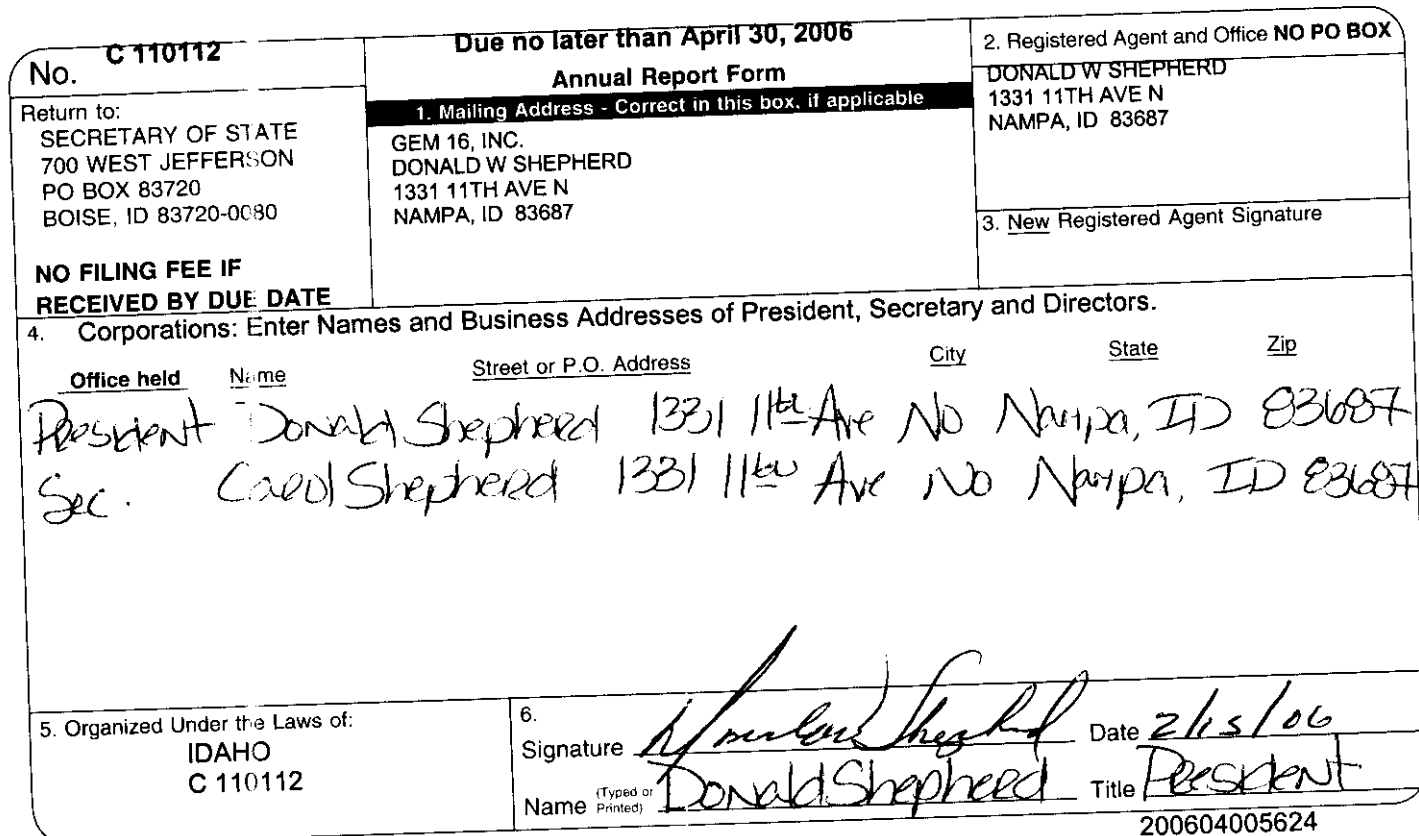 No. C 110112
Return to:
SECRETARY OF STATE
700 WEST JEFFERSON
PO BOX 83720
BOISE, ID 83720-0080
NO FILING FEE IF
RECEIVED BY DUE DATE
Due no later than April 30, 2006
Annual Report Form
1. Mailing Address - Correct in this box, if applicable
GEM 16, INC.
DONALD W SHEPHERD
1331 11TH AVE N
NAMPA, ID 83687
2. Registered Agent and Office NO PO BOX
DONALD W SHEPHERD
1331 11TH AVE N
NAMPA, ID 83687
3. New Registered Agent Signature
4. Corporations: Enter Names and Business Addresses of President, Secretary and Directors.
Office held Name Street or P.O. Address City State Zip
President Donald Shepherd 1331 11th Ave No Nampa, ID 83687
Sec. Carol Shepherd 1331 11th Ave No Nampa, ID 83687
5. Organized Under the Laws of:
IDAHO
C 110112
6.
Signature Donald W Shepherd Date 2/15/06
Name (Typed or Printed) Donald Shepherd Title President
200604005624